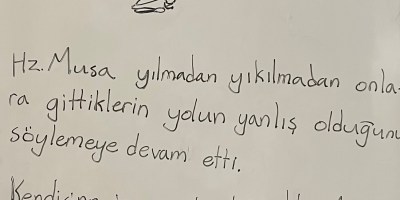 Hz. Musa yılmadan yıkılmadan onla-
ra gittiklerin yolun yanlış olduğunu
söylemeye devam etti.